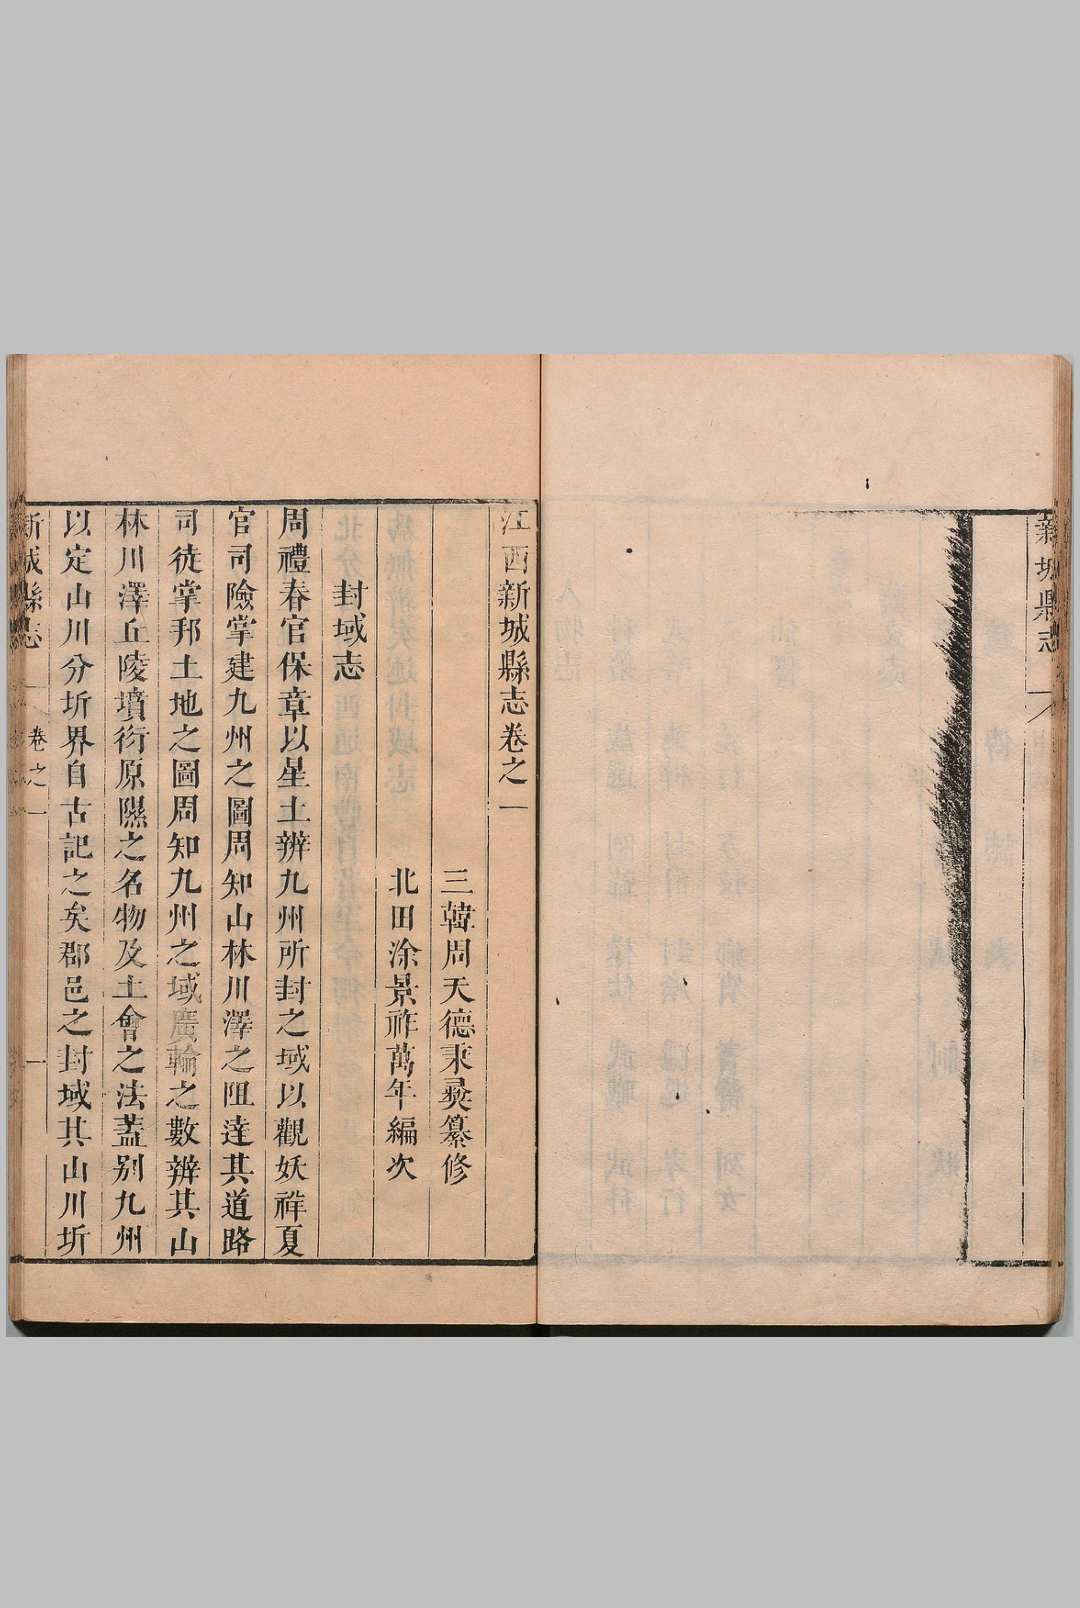 新城縣志
江西新城縣志卷之一
三韓周天德秉彝纂修
北田涂景祚萬年編次
封域志
周禮春官保章以星土辨九州所封之域以觀妖祥夏
官司險掌建九州之圖周知山林川澤之阻達其道路
司徒掌邦土地之圖周知九州之域廣輪之數辨其山
林川澤丘陵墳衍原隰之名物及土會之法蓋别九州
以定山川分圻界自古記之矣郡邑之封域其山川圻
新城縣志 卷之一 一